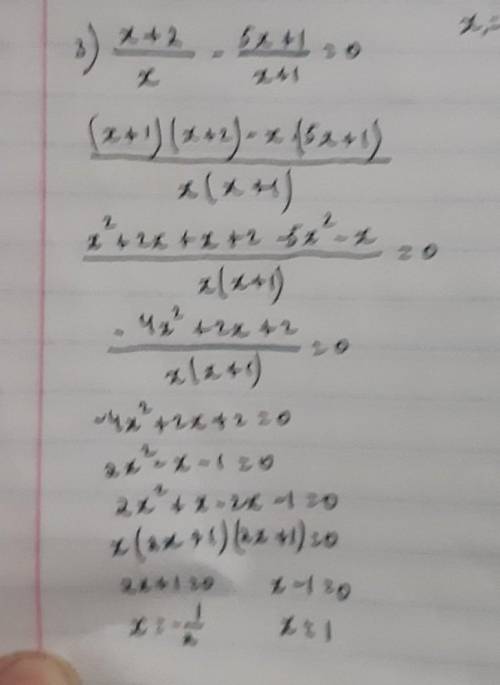 x,=
3) (x+2)/x - (5x+1)/(x+1) = 0
((x+1)(x+2)-x(5x+1))/(x(x+1))
(x²+2x+x+2-5x²-x)/(x(x+1)) = 0
(-4x²+2x+2)/(x(x+1)) = 0
-4x²+2x+2=0
2x²-x-1=0
2x²+x-2x-1=0
x(2x+1)(2x+1)=0
2x+1=0 x-1=0
x=-1/2 x=1